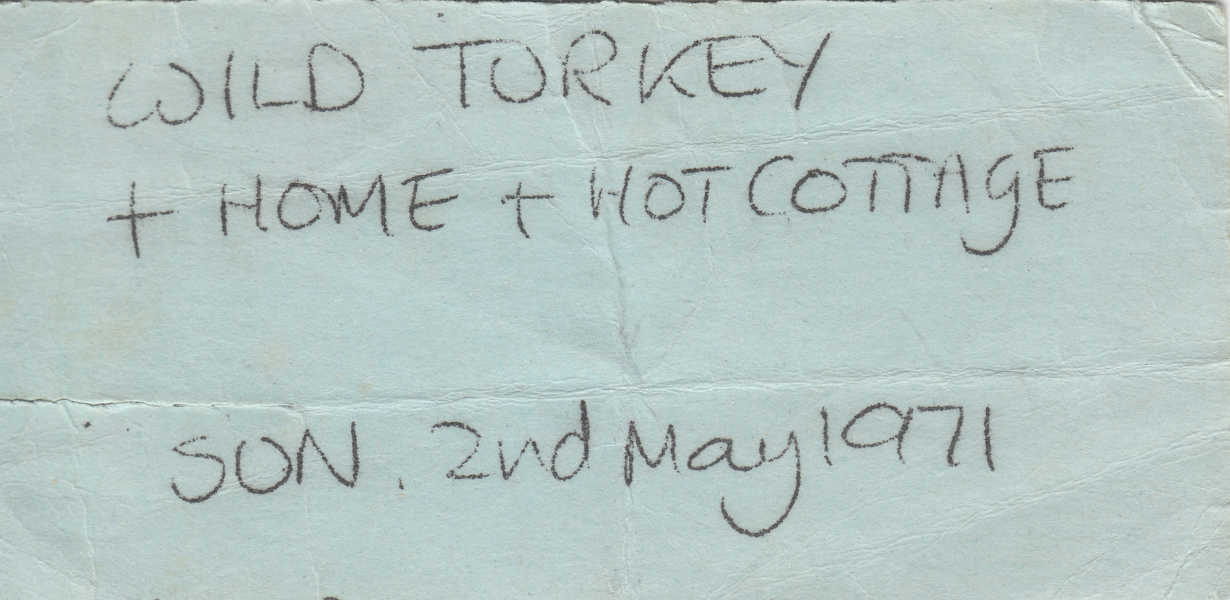 WILD TURKEY
+ HOME + HOT COTTAGE
SUN. 2nd May 1971